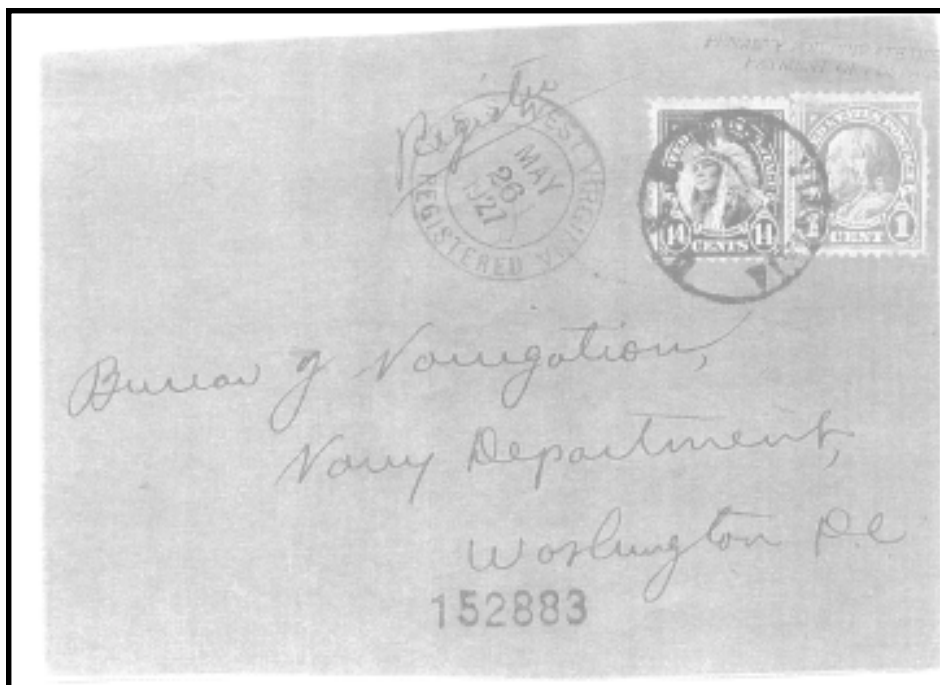 PAYMENT OF
Register
WEST VIRGINIA
MAY
26
1927
REGISTERED
14 CENTS 14
1 CENT 1
Bureau of Navigation,
Navy Department,
Washington D.C
152883